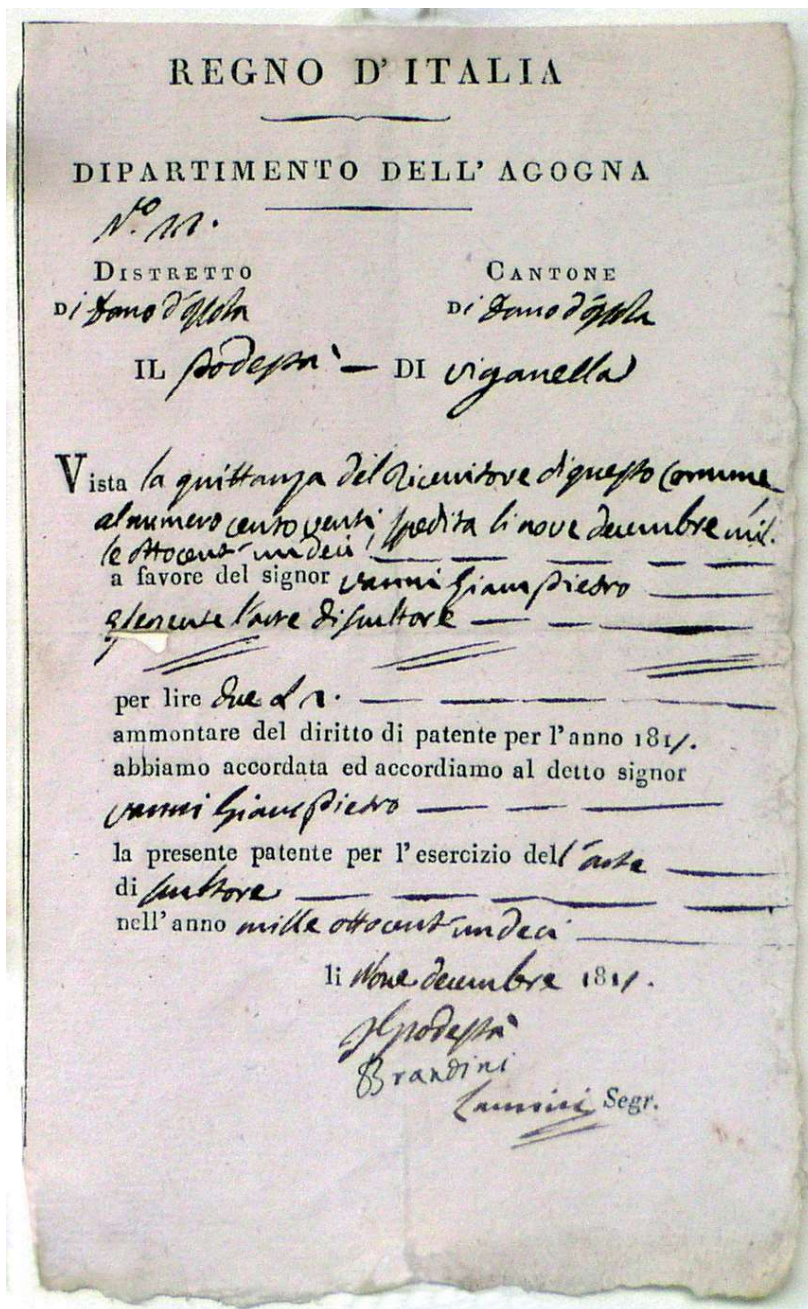 REGNO D'ITALIA
DIPARTIMENTO DELL' AGOGNA
N.º 111.
DISTRETTO CANTONE
DI Domo d'ossola DI Domo d'ossola
IL podestà DI viganella
Vista la quittanza del Ricevitore di questo Comune
al numero cento venti, spedita li nove decembre mil.
le ottocent'undeci
a favore del signor vanni Giam Pietro
esercente l'arte di scultore
per lire due
ammontare del diritto di patente per l'anno 1811.
abbiamo accordata ed accordiamo al detto signor
vanni Giam Pietro
la presente patente per l'esercizio dell'arte
di scultore
nell'anno mille ottocent'undeci
li Nove decembre 1811.
Il podestà
Brandini
Segr.